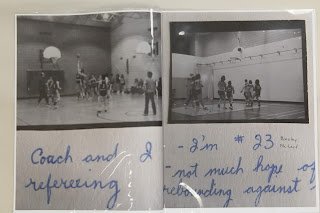 Coach and I
refereeing
- I'm # 23
- not much hope of
rebounding against -